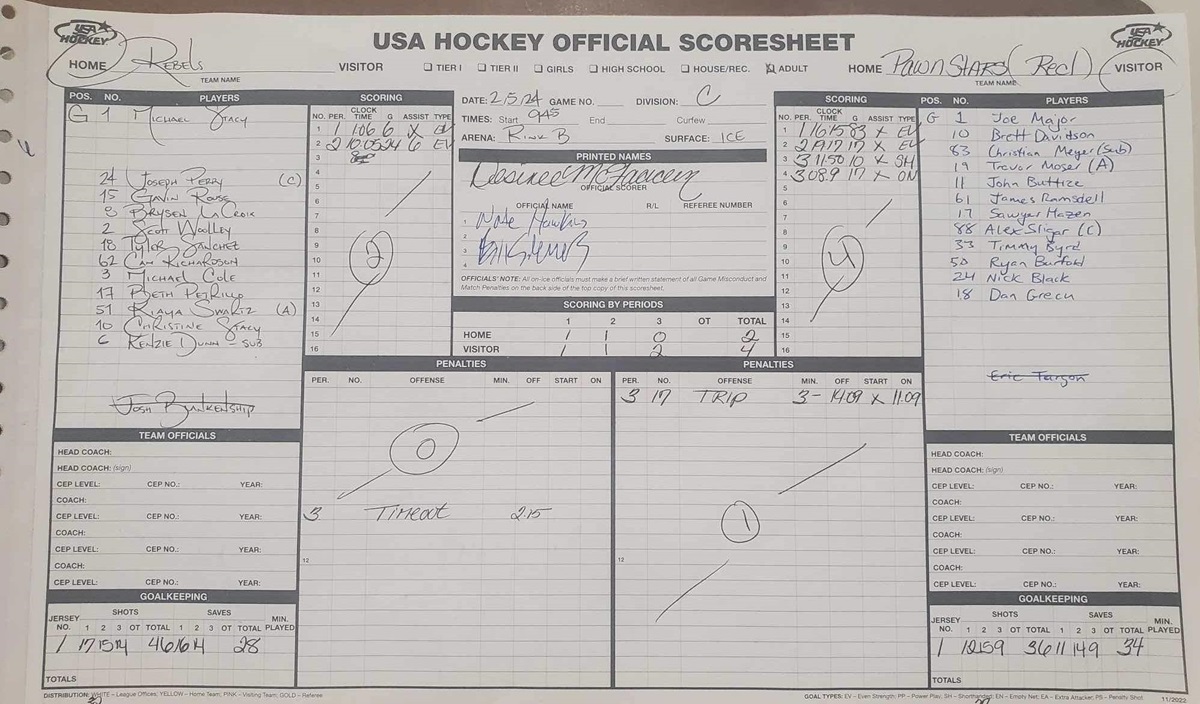 USA HOCKEY
USA HOCKEY OFFICIAL SCORESHEET
USA HOCKEY
HOME Rebels VISITOR
TEAM NAME
☐ TIER I ☐ TIER II ☐ GIRLS ☐ HIGH SCHOOL ☐ HOUSE/REC. ☒ ADULT
HOME PawnStars (Red) VISITOR
TEAM NAME
POS. NO. PLAYERS
G 1 Michael Stacy
24 Joseph Perry (C)
15 Gavin Rouse
8 Brysen LaCroix
2 Scott Woolley
18 Tyler Sanchez
62 Cam Richardson
3 Michael Cole
17 Beth Petrillo
51 Kiaya Swartz (A)
10 Christine Stacy
6 Kenzie Dunn - SUB
Josh Blankenship
SCORING
NO. PER. CLOCK TIME G ASSIST TYPE
1 1 1:06 6 X EV
2 2 10:05 24 6 EV
3
4
5
6
7
8
9
10
11
12
13
14
15
16
2
DATE: 2/5/24 GAME NO. DIVISION: C
TIMES: Start 945 End Curfew
ARENA: Rink B SURFACE: ICE
PRINTED NAMES
OFFICIAL SCORER
OFFICIAL NAME R/L REFEREE NUMBER
1 Nate Hawkins
2
3
4
OFFICIALS' NOTE: All on-ice officials must make a brief written statement of all Game Misconduct and
Match Penalties on the back side of the top copy of this scoresheet.
SCORING BY PERIODS
1 2 3 OT TOTAL
HOME 1 1 0 2
VISITOR 1 1 2 4
SCORING
NO. PER. CLOCK TIME G ASSIST TYPE
1 1 16:15 83 X EV
2 2 19:17 17 X EV
3 3 11:50 10 X SH
4 3 08.9 17 X
5
6
7
8
9
10
11
12
13
14
15
16
4
POS. NO. PLAYERS
G 1 Joe Major
10 Brett Davidson
83 Christian Meyer (Sub)
19 Trevor Moser (A)
11 John Buttize
61 James Ramsdell
17 Sawyer Hazen
88 Alex Sligar (C)
33 Timmy Byrd
50 Ryan Burfold
24 Nick Black
18 Dan Green
Eric Fargon
PENALTIES
PER. NO. OFFENSE MIN. OFF START ON
0
3 Timeout 2:15
12
PENALTIES
PER. NO. OFFENSE MIN. OFF START ON
3 17 TRIP 3- 14:09 X 11:09
1
12
TEAM OFFICIALS
HEAD COACH:
HEAD COACH: (sign)
CEP LEVEL: CEP NO.: YEAR:
COACH:
CEP LEVEL: CEP NO.: YEAR:
COACH:
CEP LEVEL: CEP NO.: YEAR:
COACH:
CEP LEVEL: CEP NO.: YEAR:
GOALKEEPING
JERSEY NO. SHOTS 1 2 3 OT TOTAL SAVES 1 2 3 OT TOTAL MIN. PLAYED
1 17 15 14 46 16 14 28
TOTALS
TEAM OFFICIALS
HEAD COACH:
HEAD COACH: (sign)
CEP LEVEL: CEP NO.: YEAR:
COACH:
CEP LEVEL: CEP NO.: YEAR:
COACH:
CEP LEVEL: CEP NO.: YEAR:
COACH:
CEP LEVEL: CEP NO.: YEAR:
GOALKEEPING
JERSEY NO. SHOTS 1 2 3 OT TOTAL SAVES 1 2 3 OT TOTAL MIN. PLAYED
1 12 15 9 36 11 14 9 34
TOTALS
DISTRIBUTION: WHITE – League Offices; YELLOW – Home Team; PINK – Visiting Team; GOLD – Referee
GOAL TYPES: EV – Even Strength; PP – Power Play; SH – Shorthanded; EN – Empty Net; EA – Extra Attacker; PS – Penalty Shot
11/2022